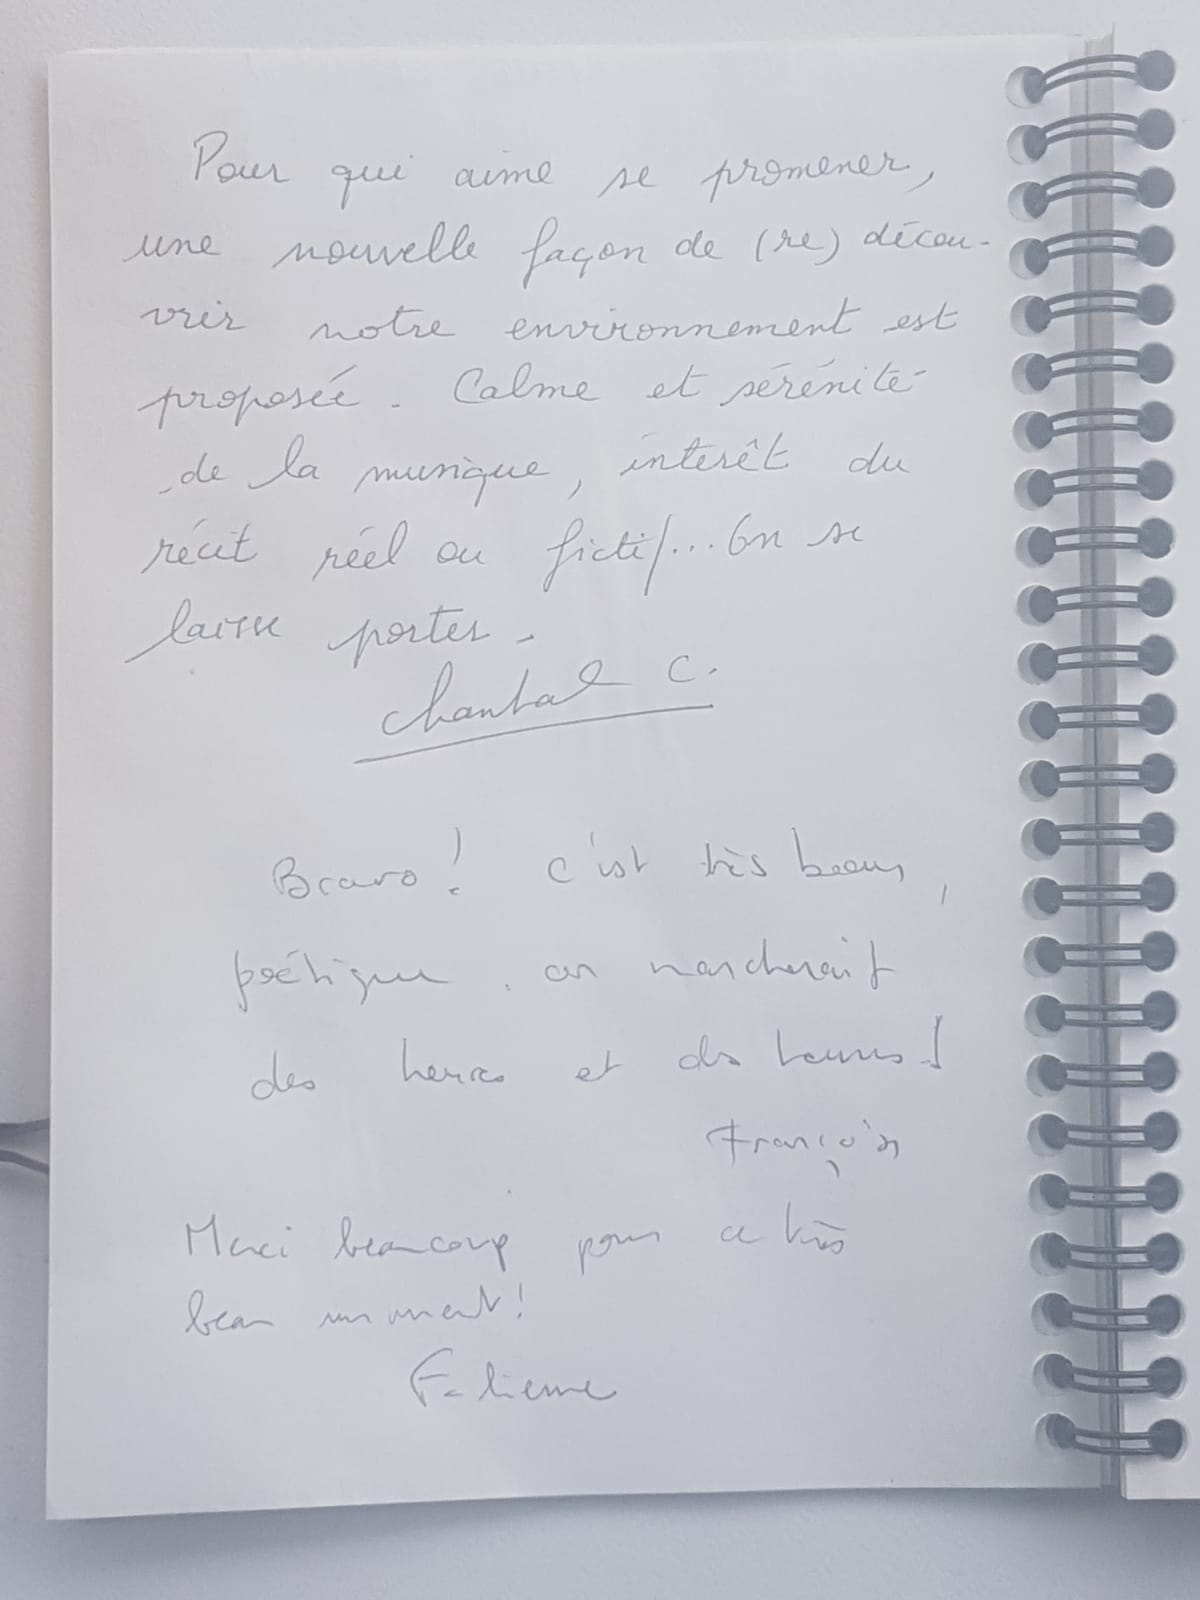 Pour qui aime se promener,
une nouvelle façon de (re) décou-
vrir notre environnement est
proposée. Calme et sérénité
de la musique, interêt du
récit réel ou fictif... On se
laisse porter.
Chantal C.
Bravo ! c'est très beau,
poétique. on marcherait
des heures et des heures !
François
Merci beaucoup pour ce très
beau moment !